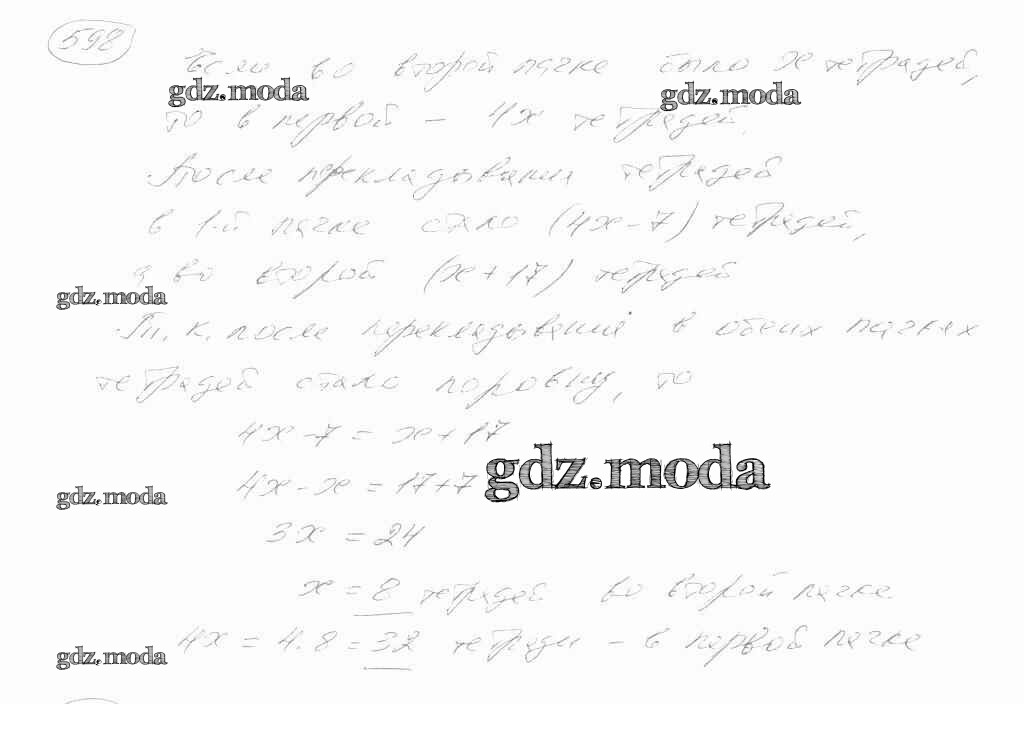 598
Если во второй пачке было x тетрадей,
gdz.moda gdz.moda
то в первой - 4x тетрадей.
После перекладывания тетрадей
в 1-й пачке стало (4x-7) тетрадей,
а во второй (x+17) тетрадей
gdz.moda
Т.к. после перекладывания в обеих пачках
тетрадей стало поровну, то
4x-7 = x+17
gdz.moda
4x-x = 17+7
gdz.moda
3x = 24
x = 8 тетрадей во второй пачке
4x = 4.8 = 32 тетради - в первой пачке
gdz.moda